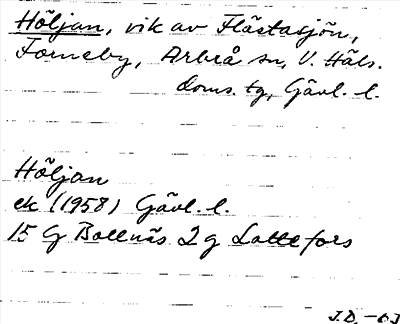 Höljan, vik av Flästasjön,
Forneby, Arbrå sn, V. Häls.
doms. tg, Gävl. l.
Höljan
ek (1958) Gävl. l.
15 G Bollnäs 2 g Lottefors
J.D. -63